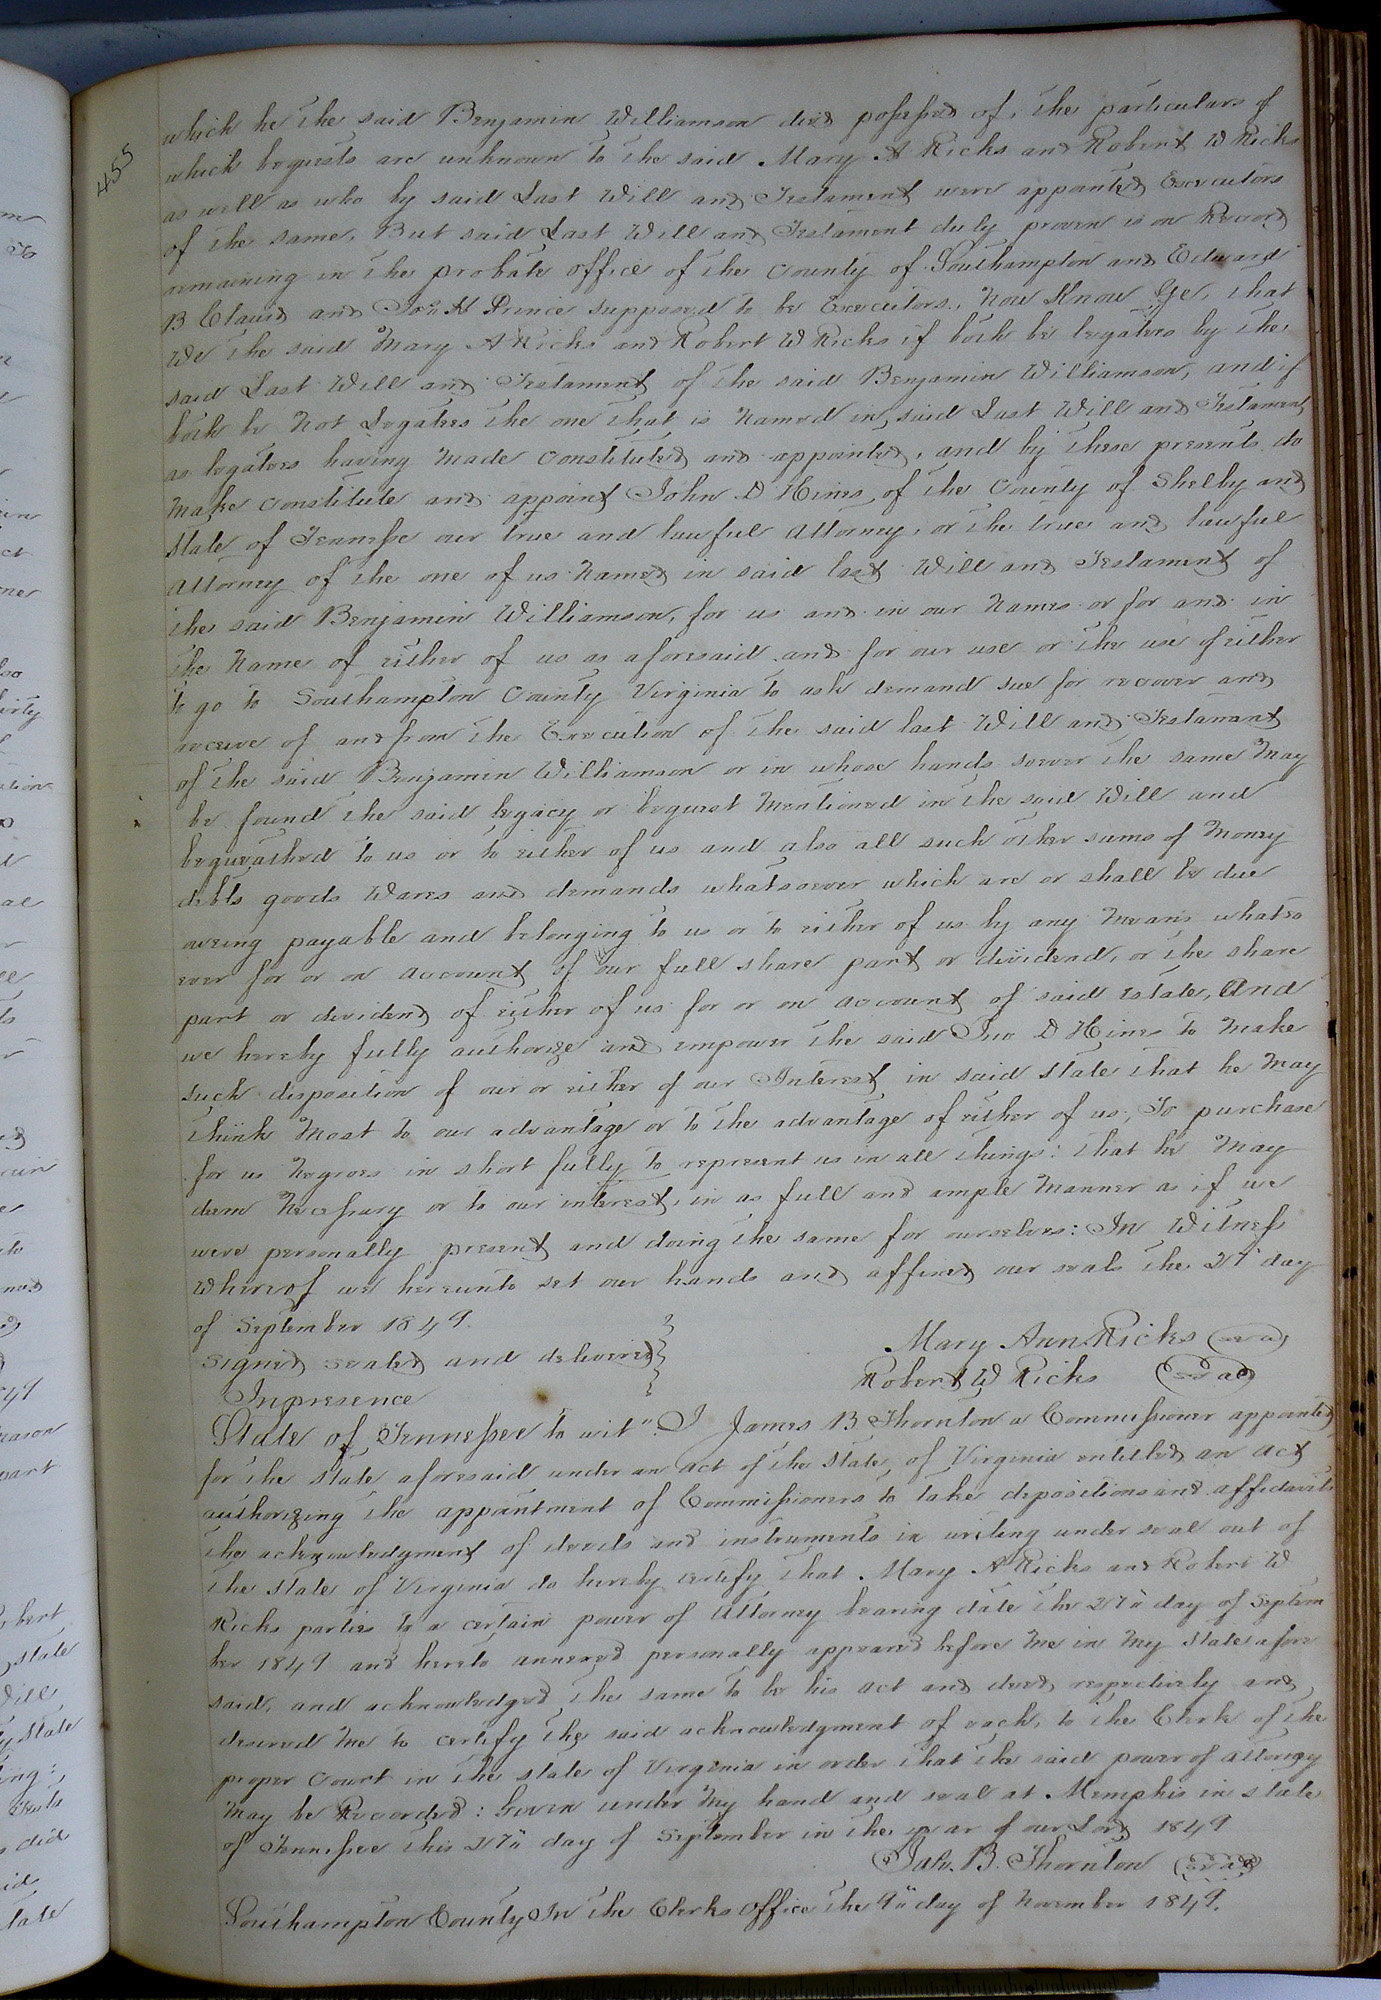 455
which he the said Benjamin Williamson died possessed of, the particulars of
which bequests are unknown to the said Mary A Ricks and Robert W Ricks
as well as who by said Last Will and Testament were appointed Executors
of the same, But said Last Will and Testament duly proven is on Record
remaining in the probate office of the County of Southampton and Edward
B Claud and Jos H Prince supposed to be Executors, Now Know Ye, that
We the said Mary A Ricks and Robert W Ricks if both be legatees by the
said Last Will and Testament of the said Benjamin Williamson, and if
both be Not Legatees the one that is Named in said Last Will and Testament
as legatees having Made Constituted and appointed, and by these presents do
Make Constitute and appoint John D Hines of the County of Shelby and
State of Tennessee our true and lawful attorney, or the true and lawful
attorney of the one of us Named in said last Will and Testament of
the said Benjamin Williamson, for us and in our Names or for and in
the Name of either of us as aforesaid and for our use or the use of either
to go to Southampton County Virginia to ask demand sue for recover and
receive of and from the Execution of the said last Will and Testament
of the said Benjamin Williamson or in whose hands soever the same May
be found the said legacy or bequest Mentioned in the said Will and
bequeathed to us or to either of us and also all such other sums of Money
debts goods Wares and demands whatsoever which are or shall be due
oweing payable and belonging to us or to either of us by any Means whatso
ever for or on account of our full share part or dividend, or the share
part or dividend of either of us for or on account of said Estate, And
we hereby fully authorize and empower the said Jno D Hines to Make
such disposition of our or either of our Interest in said State that he May
think Most to our advantage or to the advantage of either of us, To purchase
for us Negroes in short fully to represent us in all things: that he May
deem Necessary or to our interest, in as full and ample Manner as if we
were personally present and doing the same for ourselves: In Witness
Whereof we hereunto set our hands and affixed our seals the 27 day
of September 1849.
Signed sealed and delivered
Mary Ann Ricks seal
Robert W Ricks seal
In presence
State of Tennessee to wit". I James B Thornton a Commissioner appointed
for the State aforesaid under an act of the State of Virginia entitled an act
authorizing the appointment of Commissioners to take depositions and affidavits
the acknowledgment of deeds and instruments in writing under seal out of
the State of Virginia do hereby certify that Mary A Ricks and Robert W
Ricks parties to a certain power of Attorney bearing date the 27" day of Septem
ber 1849 and hereto annexed personally appeared before Me in My State afore
said, and acknowledged the same to be his act and deed respectively and
desired Me to certify the said acknowledgment of each, to the Clerk of the
proper Court in the State of Virginia in order that the said power of attorney
May be Recorded: Given under My hand and seal at Memphis in State
of Tennessee this 27" day of September in the year of our Lord 1849
Jas. B. Thornton seal
Southampton County In the Clerks Office the 9" day of November 1849.